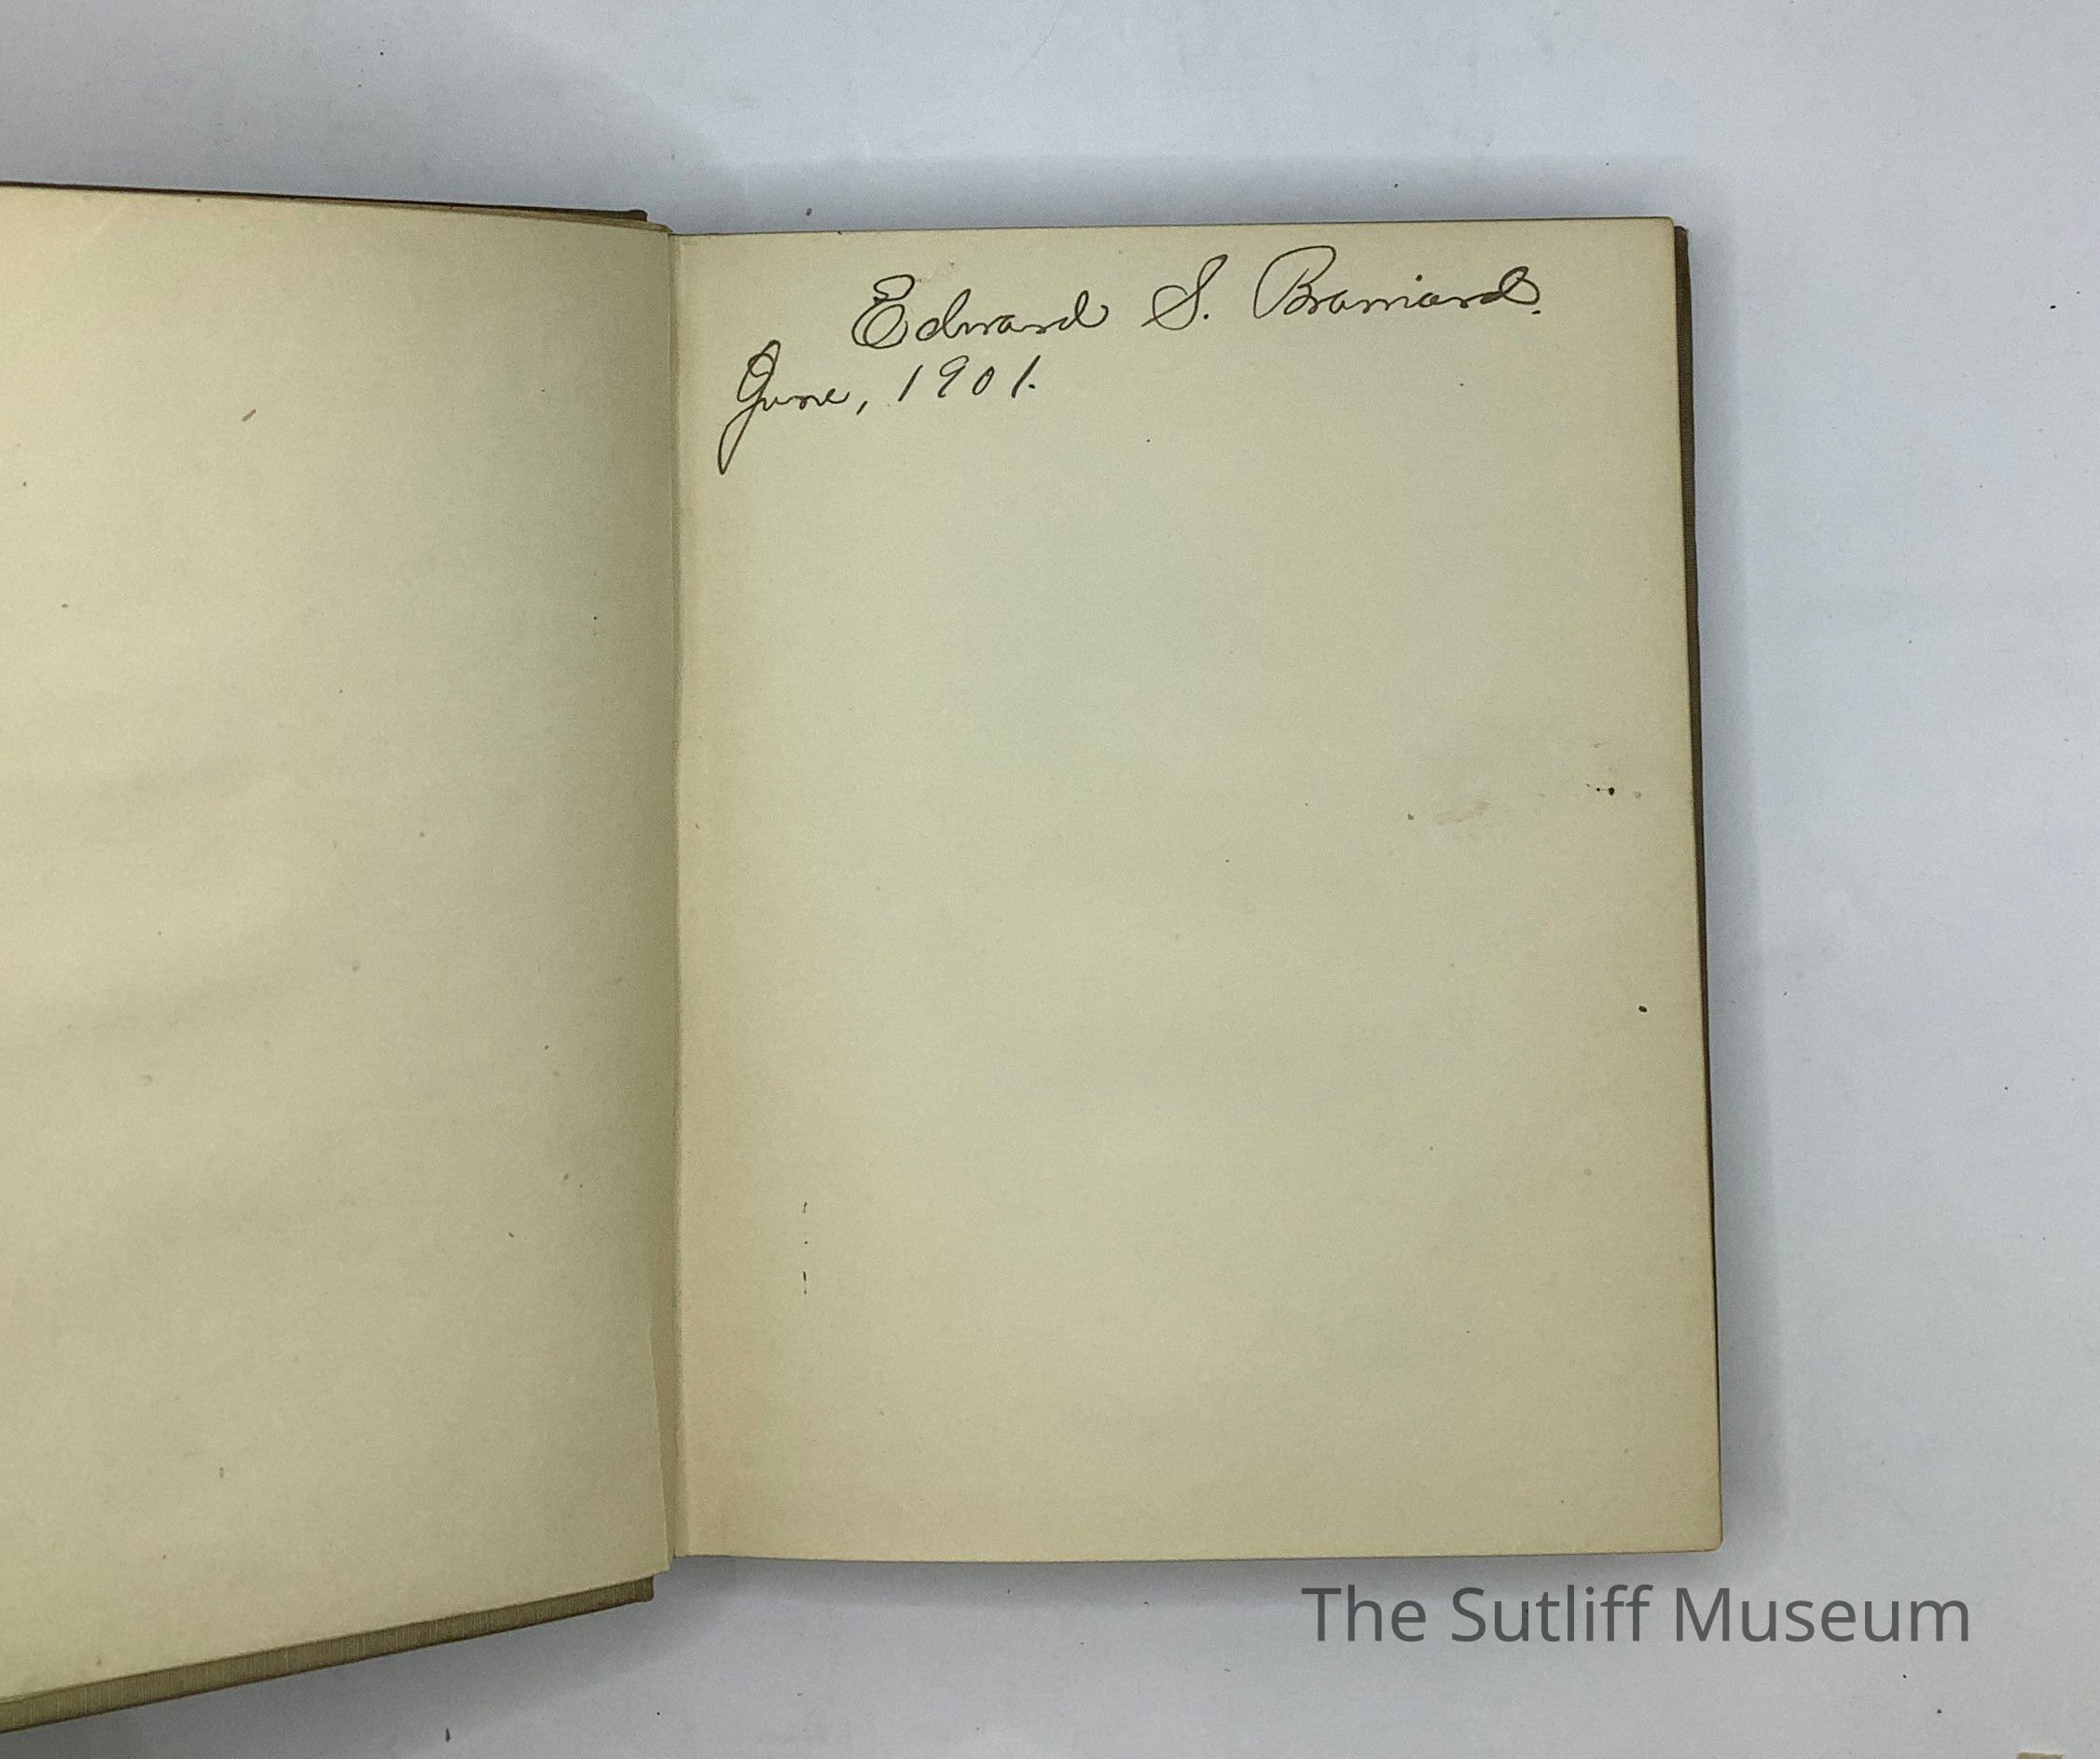 Edward S. Brainard.
June, 1901.
The Sutliff Museum